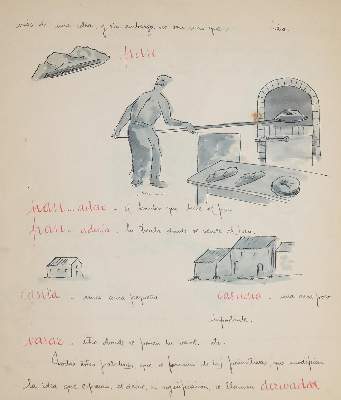 más de una idea, y sin embargo no son más que
pan
pan...adero - el hombre que hace el pan.
pan...adería - la tienda donde se vende el pan.
casita - una casa pequeña
casucha - una casa poco
importante.
donde se ponen las
Todas estas palabras, que se forman de las primitivas, que modifican
la idea que expresa, es decir, su significación, se llaman derivadas